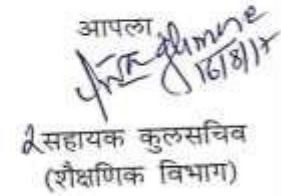 आपला
16/8/17
सहायक कुलसचिव
(शैक्षणिक विभाग)